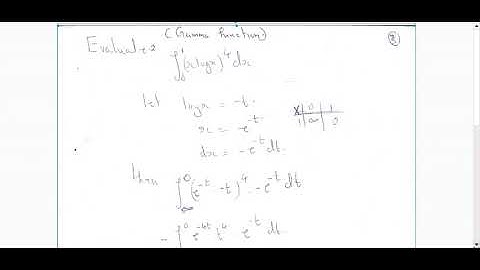 (Gamma function)
Evaluate
∫₀¹ (x log x)⁴ dx
let log x = -t.
x = e^{-t}
dx = -e^{-t} dt.
x 0 1
t ∞ 0
then ∫_∞^0 (e^{-t} -t)⁴ - e^{-t} dt
- ∫ 0 e^{-4t} t⁴ e^{-t} dt.